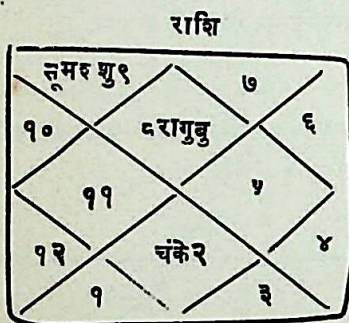 राशि
सूमश शु९
७
१०
८रागुबु
६
११
५
१२
चंके२
४
१
३